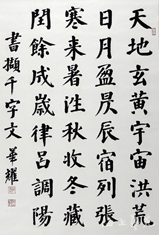 天地玄黃宇宙洪荒
日月盈昃辰宿列張
寒来暑往秋收冬藏
閏餘成歲律吕調陽
書擷千字文 華耀